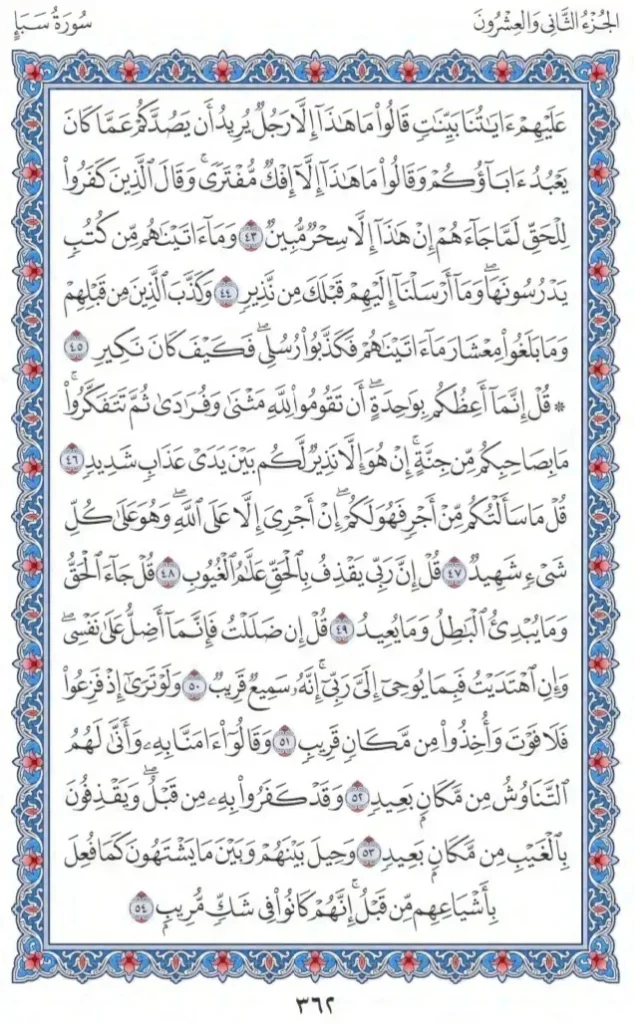 الجُزْءُ الثَّانِي وَالعِشْرُونَ
سُورَةُ سَبَإٍ
عَلَيْهِمْ ءَايَٰتُنَا بَيِّنَٰتٖ قَالُواْ مَا هَٰذَآ إِلَّا رَجُلٞ يُرِيدُ أَن يَصُدَّكُمۡ عَمَّا كَانَ
يَعۡبُدُ ءَابَآؤُكُمۡ وَقَالُواْ مَا هَٰذَآ إِلَّآ إِفۡكٞ مُّفۡتَرٗىۚ وَقَالَ ٱلَّذِينَ كَفَرُواْ
لِلۡحَقِّ لَمَّا جَآءَهُمۡ إِنۡ هَٰذَآ إِلَّا سِحۡرٞ مُّبِينٞ ٤٣ وَمَآ ءَاتَيۡنَٰهُم مِّن كُتُبٖ
يَدۡرُسُونَهَاۖ وَمَآ أَرۡسَلۡنَآ إِلَيۡهِمۡ قَبۡلَكَ مِن نَّذِيرٖ ٤٤ وَكَذَّبَ ٱلَّذِينَ مِن قَبۡلِهِمۡ
وَمَا بَلَغُواْ مِعۡشَارَ مَآ ءَاتَيۡنَٰهُمۡ فَكَذَّبُواْ رُسُلِيۖ فَكَيۡفَ كَانَ نَكِيرِ ٤٥
۞ قُلۡ إِنَّمَآ أَعِظُكُم بِوَٰحِدَةٍۖ أَن تَقُومُواْ لِلَّهِ مَثۡنَىٰ وَفُرَٰدَىٰ ثُمَّ تَتَفَكَّرُواْۚ
مَا بِصَاحِبِكُم مِّن جِنَّةٍۚ إِنۡ هُوَ إِلَّا نَذِيرٞ لَّكُم بَيۡنَ يَدَيۡ عَذَابٖ شَدِيدٖ ٤٦
قُلۡ مَا سَأَلۡتُكُم مِّنۡ أَجۡرٖ فَهُوَ لَكُمۡۖ إِنۡ أَجۡرِيَ إِلَّا عَلَى ٱللَّهِۖ وَهُوَ عَلَىٰ كُلِّ
شَيۡءٖ شَهِيدٞ ٤٧ قُلۡ إِنَّ رَبِّي يَقۡذِفُ بِٱلۡحَقِّ عَلَّٰمُ ٱلۡغُيُوبِ ٤٨ قُلۡ جَآءَ ٱلۡحَقُّ
وَمَا يُبۡدِئُ ٱلۡبَٰطِلُ وَمَا يُعِيدُ ٤٩ قُلۡ إِن ضَلَلۡتُ فَإِنَّمَآ أَضِلُّ عَلَىٰ نَفۡسِيۖ
وَإِنِ ٱهۡتَدَيۡتُ فَبِمَا يُوحِيٓ إِلَيَّ رَبِّيٓۚ إِنَّهُۥ سَمِيعٞ قَرِيبٞ ٥٠ وَلَوۡ تَرَىٰٓ إِذۡ فَزِعُواْ
فَلَا فَوۡتَ وَأُخِذُواْ مِن مَّكَانٖ قَرِيبٖ ٥١ وَقَالُوٓاْ ءَامَنَّا بِهِۦ وَأَنَّىٰ لَهُمُ
ٱلتَّنَاوُشُ مِن مَّكَانِۭ بَعِيدٖ ٥٢ وَقَدۡ كَفَرُواْ بِهِۦ مِن قَبۡلُۖ وَيَقۡذِفُونَ
بِٱلۡغَيۡبِ مِن مَّكَانِۭ بَعِيدٖ ٥٣ وَحِيلَ بَيۡنَهُمۡ وَبَيۡنَ مَا يَشۡتَهُونَ كَمَا فُعِلَ
بِأَشۡيَاعِهِم مِّن قَبۡلُۚ إِنَّهُمۡ كَانُواْ فِي شَكّٖ مُّرِيبِۭ ٥٤
٣٦٢